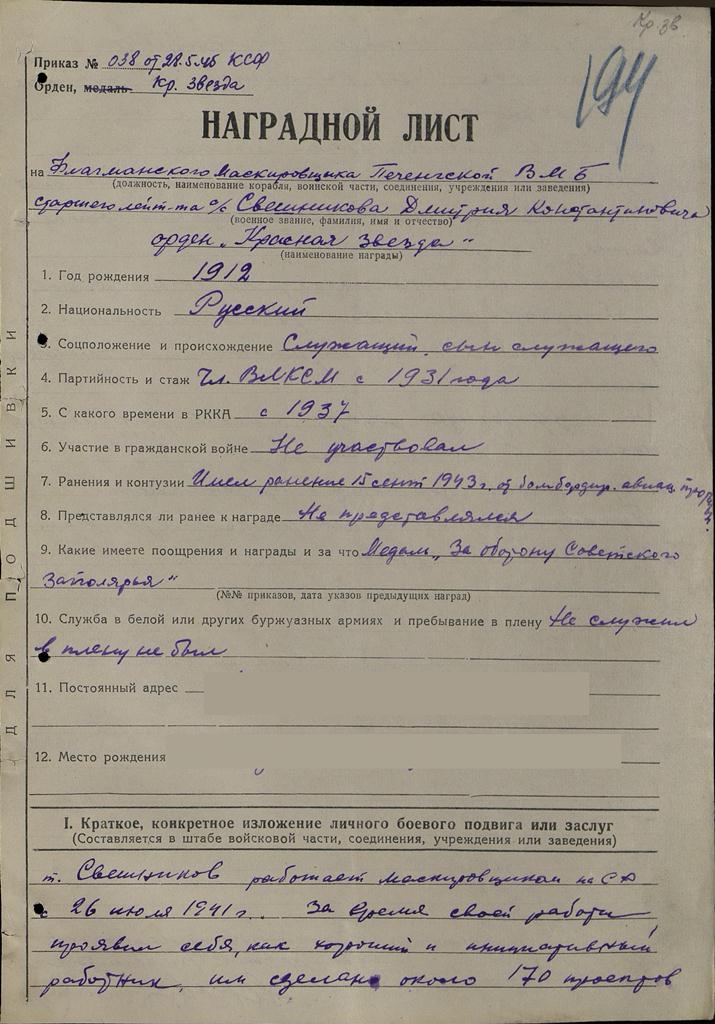 Кр. зв.
Приказ № 038 от 28.5.45 КСФ
Орден, медаль Кр. Звезда
194
НАГРАДНОЙ ЛИСТ
на Флагманского Маскировщика Печенгской ВМБ
(должность, наименование корабля, воинской части, соединения, учреждения или заведения)
старшего лейт-та а/с Свешникова Дмитрия Константиновича
(военное звание, фамилия, имя и отчество)
орден „Красная Звезда"
(наименование награды)
1. Год рождения 1912
2. Национальность Русский
3. Соцположение и происхождение Служащий, сын служащего
4. Партийность и стаж Чл. ВЛКСМ с 1931 года
5. С какого времени в РККА с 1937
6. Участие в гражданской войне Не участвовал
7. Ранения и контузии Имел ранение 15 сент 1943 г. от бомбардир. авиац.
8. Представлялся ли ранее к награде Не представлялся
9. Какие имеете поощрения и награды и за что Медаль „За оборону Советского
Заполярья"
(№№ приказов, дата указов предыдущих наград)
10. Служба в белой или других буржуазных армиях и пребывание в плену Не служил
в плену не был
11. Постоянный адрес
12. Место рождения
ДЛЯ ПОДШИВКИ
I. Краткое, конкретное изложение личного боевого подвига или заслуг
(Составляется в штабе войсковой части, соединения, учреждения или заведения)
т. Свешников работает маскировщиком на СФ
с 26 июля 1941 г. За время своей работы
проявил себя, как хороший и инициативный
работник, им сделано около 170 проектов